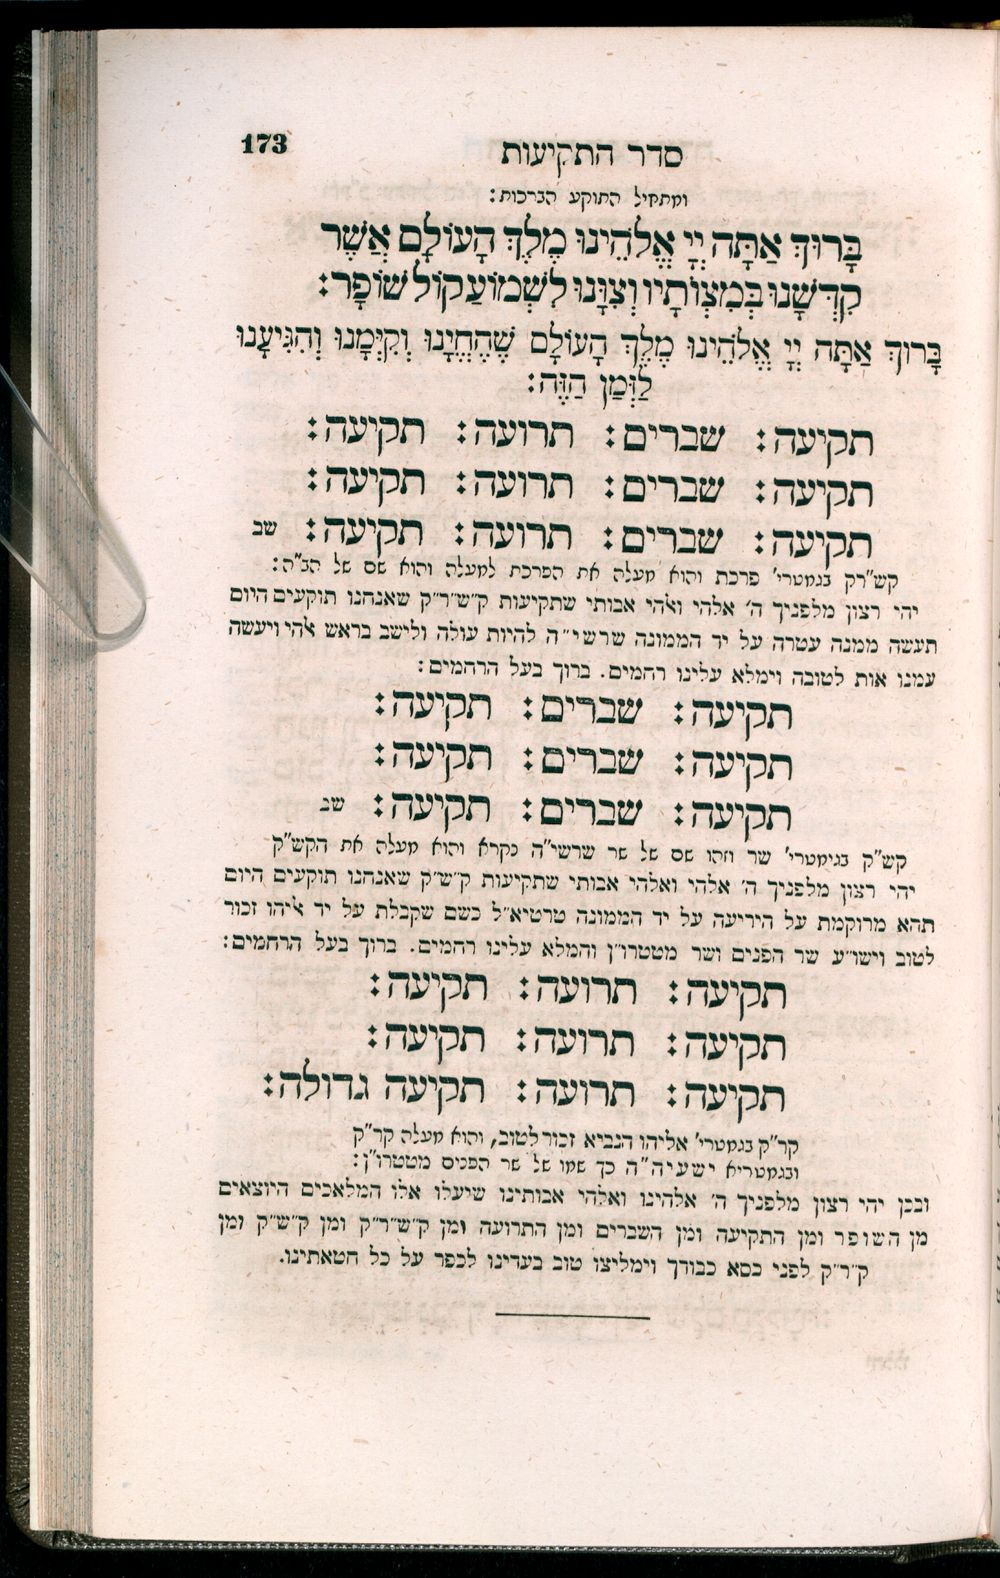 סדר התקיעות 173
ומתחיל התוקע הברכות:
בָּרוּךְ אַתָּה יְיָ אֱלֹהֵינוּ מֶלֶךְ הָעוֹלָם אֲשֶׁר
קִדְּשָׁנוּ בְּמִצְוֹתָיו וְצִוָּנוּ לִשְׁמוֹעַ קוֹל שׁוֹפָר:
בָּרוּךְ אַתָּה יְיָ אֱלֹהֵינוּ מֶלֶךְ הָעוֹלָם שֶׁהֶחֱיָנוּ וְקִיְּמָנוּ וְהִגִּיעָנוּ
לַזְּמַן הַזֶּה:
תקיעה: שברים: תרועה: תקיעה:
תקיעה: שברים: תרועה: תקיעה:
תקיעה: שברים: תרועה: תקיעה: שב
קש״רק בגמטרי׳ פרכת והוא מעלה את הפרכת למעלה והוא שם של הב״ה:
יהי רצון מלפניך ה׳ אלהי ואלהי אבותי שתקיעות ק״ש״ר״ק שאנחנו תוקעים היום
תעשה ממנה עטרה על יד הממונה שרשי״ה להיות עולה ולישב בראש אלהי ויעשה
עמנו אות לטובה וימלא עלינו רחמים. ברוך בעל הרחמים:
תקיעה: שברים: תקיעה:
תקיעה: שברים: תקיעה:
תקיעה: שברים: תקיעה: שב
קש״ק בגימטרי׳ שר וזהו שם של שר שרשי״ה נקרא והוא מעלה את הקש״ק
יהי רצון מלפניך ה׳ אלהי ואלהי אבותי שתקיעות ק״ש״ק שאנחנו תוקעים היום
תהא מרוקמת על היריעה על יד הממונה טרטיא״ל כשם שקבלת על יד אליהו זכור
לטוב וישו״ע שר הפנים ושר מטטרו״ן והמלא עלינו רחמים. ברוך בעל הרחמים:
תקיעה: תרועה: תקיעה:
תקיעה: תרועה: תקיעה:
תקיעה: תרועה: תקיעה גדולה:
קר״ק בגמטרי׳ אליהו הנביא זכור לטוב, והוא מעלה קר״ק
ובגמטריא ישעיה״ה כך שמו של שר הפנים מטטרו״ן:
ובכן יהי רצון מלפניך ה׳ אלהינו ואלהי אבותינו שיעלו אלו המלאכים היוצאים
מן השופר ומן התקיעה ומן השברים ומן התרועה ומן ק״ש״ר״ק ומן ק״ש״ק ומן
ק״ר״ק לפני כסא כבודך וימליצו טוב בעדינו לכפר על כל חטאתינו.